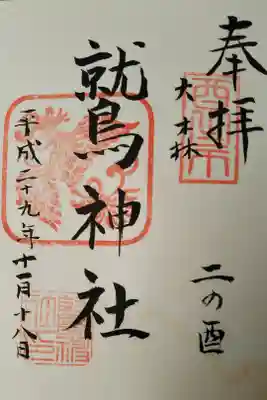 奉拝
大森
二の酉
鷲神社
平成二十九年十一月十八日